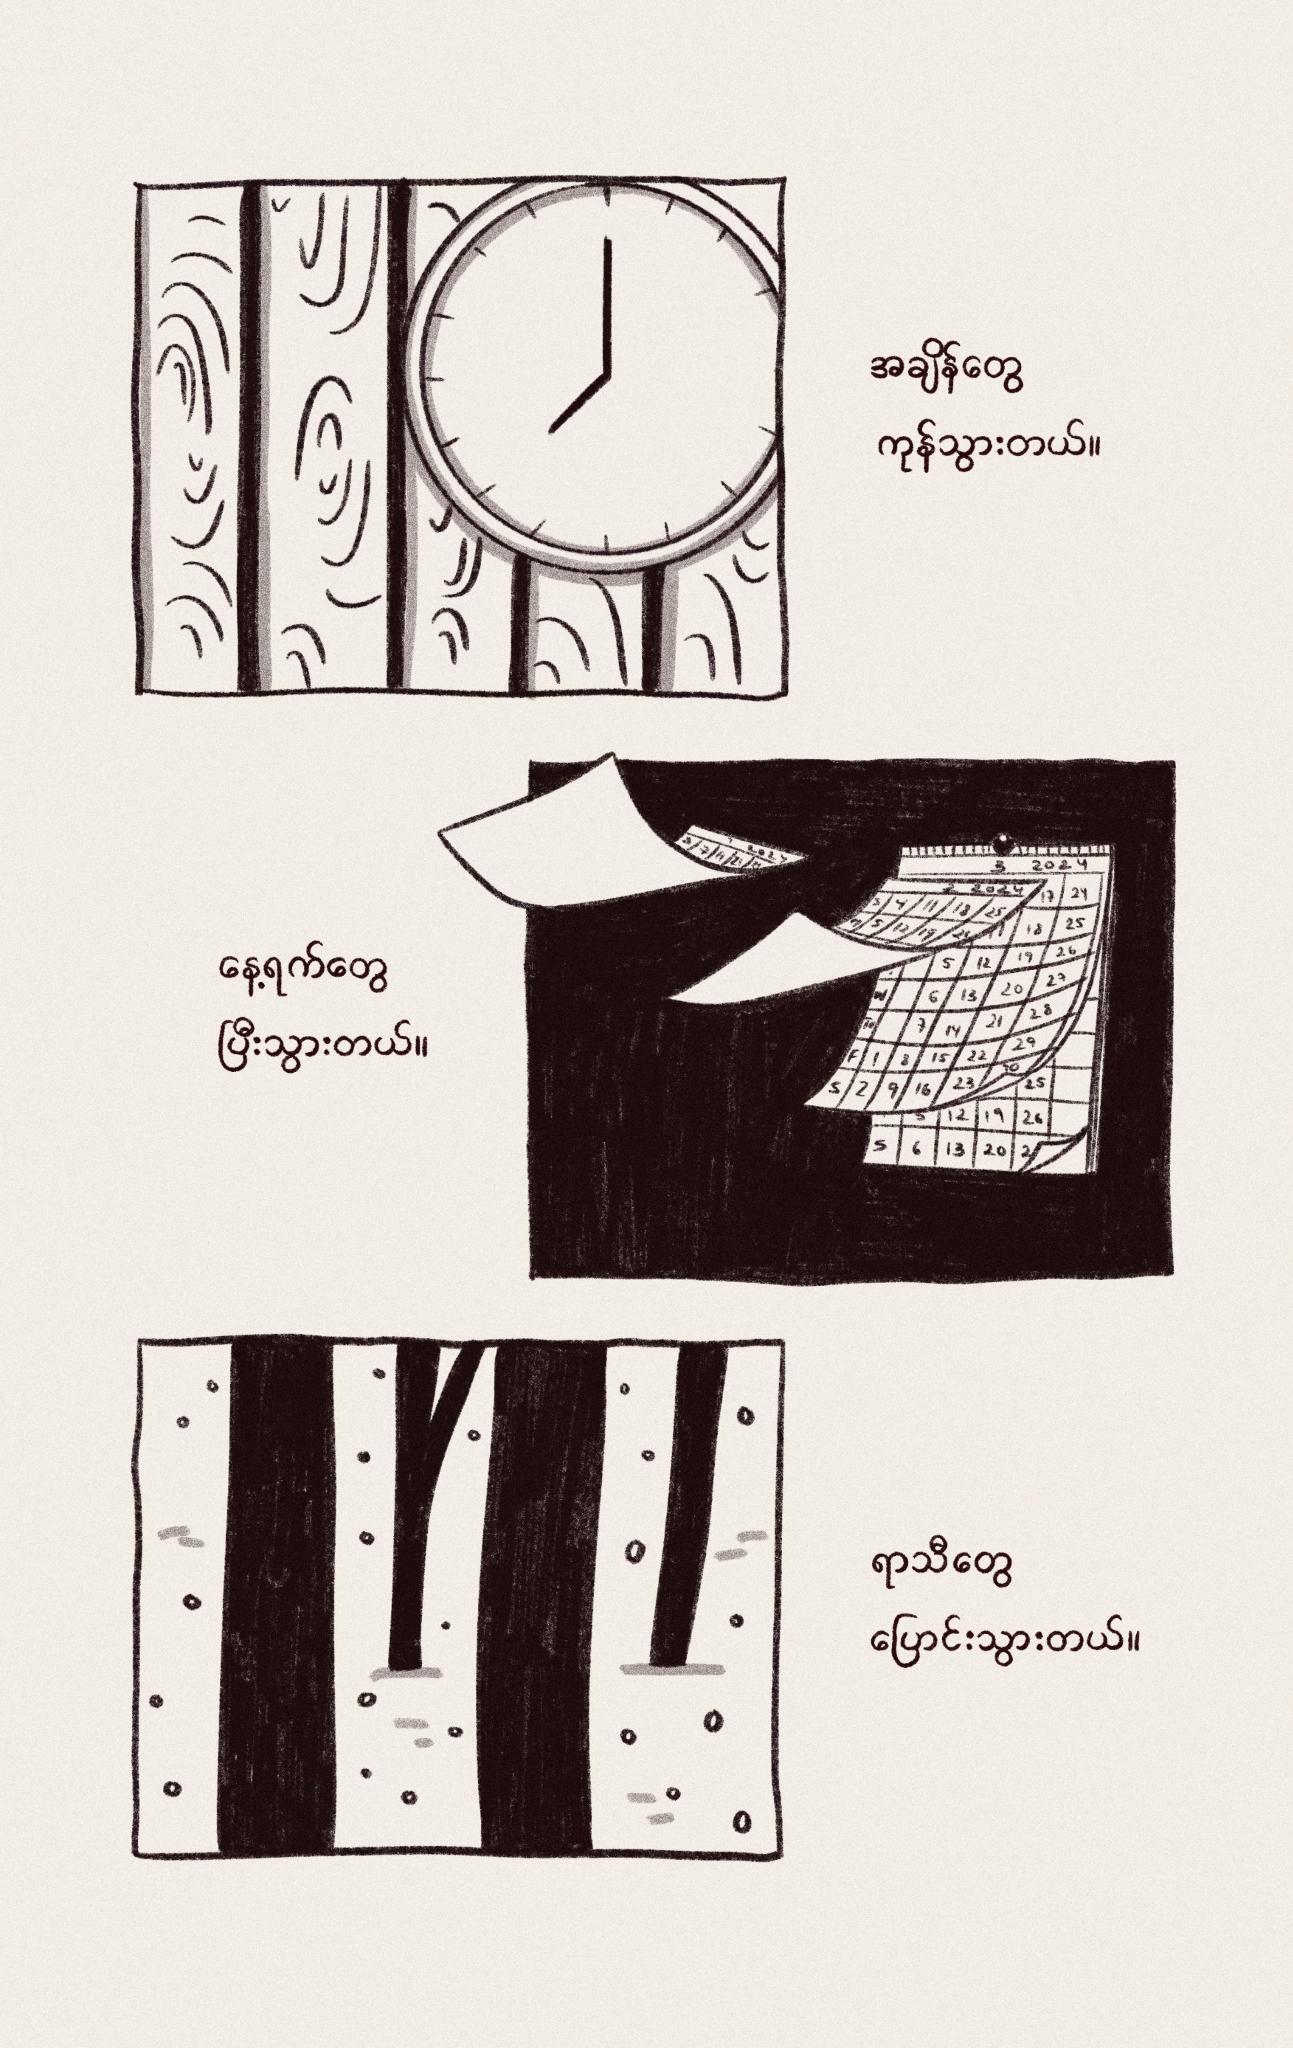 အချိန်တွေ
ကုန်သွားတယ်။
2024
3 2024
2 2024
17 24
3 4 11 18 25
18 25
5 12 19
5 12 19 26
6 13 20 27
7 14 21 28
F 1 8 15 22 29
S 2 9 16 23 30
25
5 12 19 26
5 6 13 20
နေ့ရက်တွေ
ပြီးသွားတယ်။
ရာသီတွေ
ပြောင်းသွားတယ်။